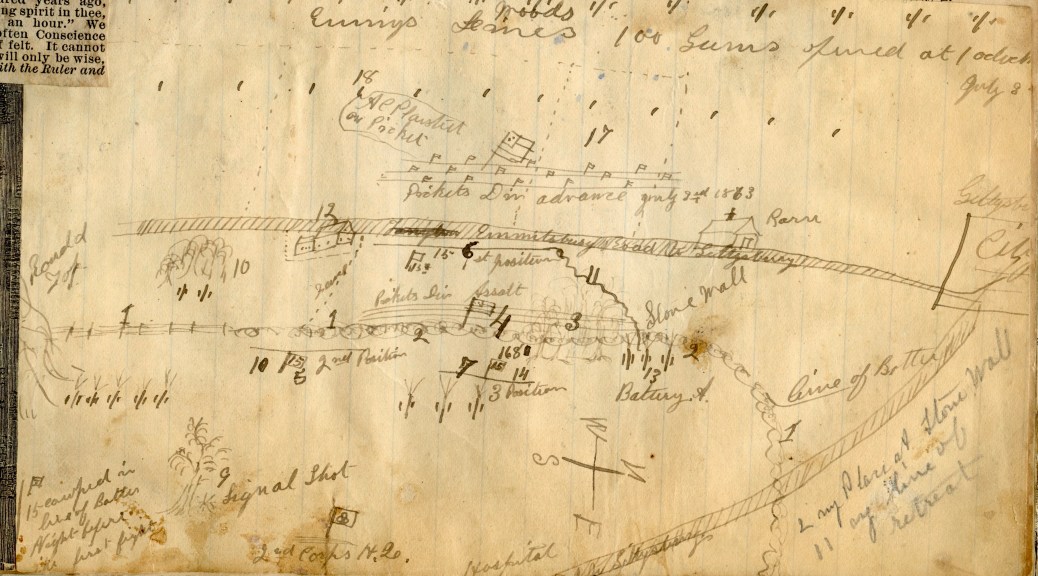 ared years ago,
ng spirit in thee,
an hour." We
ften Conscience
f felt. It cannot
will only be wise,
ith the Ruler and
Woods
Enimys Lines 100 Guns fired at 1 oclock
July 3
18
on Picket
17
Pickets Div advance July 3rd 1863
Gettysb
City
12
Emmitsburg Road to Gettysburg
Barn
Round
Top
10
15
6
1st position
11
Stone Wall
Pickets Div Assalt
1
1
2
4
3
2
10
15
2nd Position
7
14
3 Position
13
Battery A.
Line of Battle
1
W
S
N
E
9
Signal Shot
15
Line of Battle
Night before
first fight
2nd Corps H. Q.
Hospital
2 my Place at Stone Wall
11 my Line of
retreat